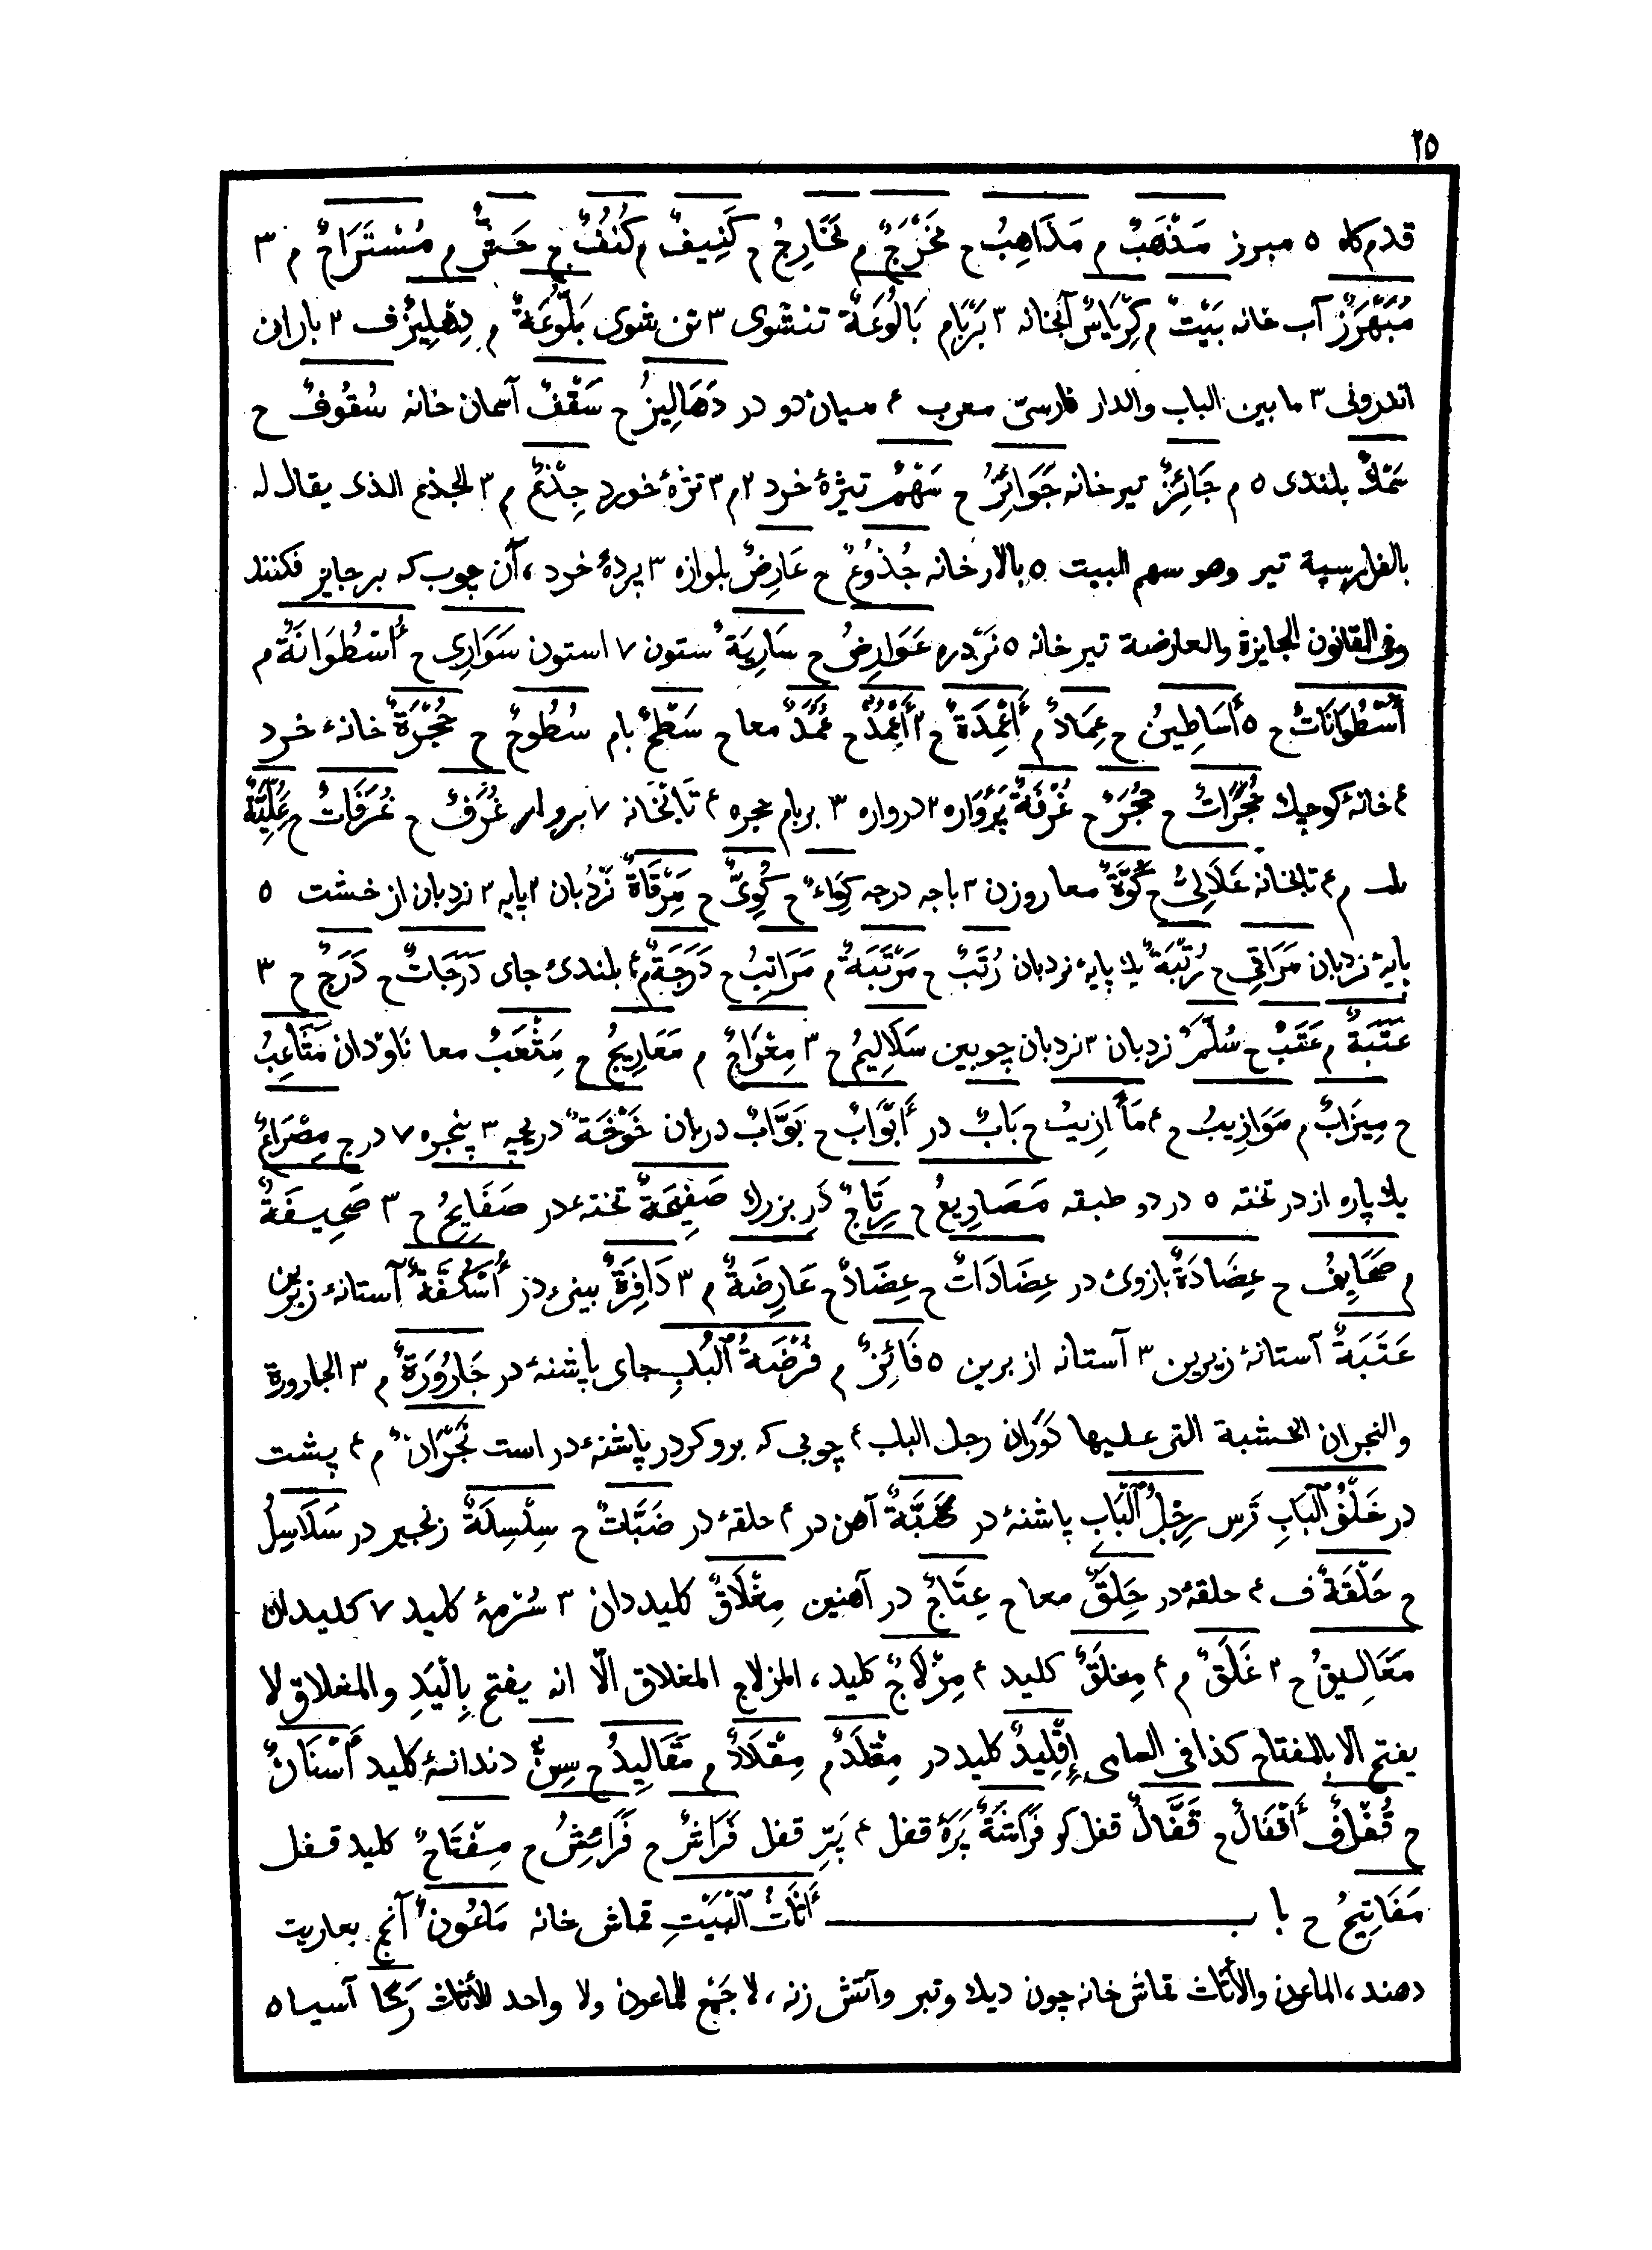 ٢٥
قدم‌گاه ٥ مبرز مَذْهَبٌ م مَذَاهِبُ ح مَخْرَجٌ م مَخَارِجُ ح كَنِيفٌ م كُنُفٌ ح حَشٌّ م مُسْتَرَاحٌ م ٣
مُبَرَّزٌ آب خانه بَيْتٌ م كِرْيَاسٌ آبخانه ٣ بَرْبَام بَالُوعَةٌ تنشوى ٣ تن شوى بَلُّوعَةٌ م دِهْلِيزٌ ف ٢ باران
اندرونى ٣ ما بين الباب والدار فارسىّ معرب ء ميان دو در دَهَالِيزُ ح سَقْفٌ آسمان خانه سُقُوفٌ ح
سَمْكٌ بلندى ٥ م جَائِزٌ تير خانه جَوَائِزُ ح سَهْمٌ تيژهٔ خرد ٢ م ٣ تژهٔ خورد جِذْعٌ م ٣ الجذع الذى يقال له
بالفارسية تير وهو سهم البيت ٥ بالار خانه جُذُوعٌ ح عَارِضٌ بلوازه ٣ پردهٔ خرد ، آن چوب كه بر جايز فكنند
وفى القانون الجايزة والعارضة تير خانه ٥ نَرّدره عَوَارِضُ ح سَارِيَةٌ ستون ٧ استون سَوَارِى ح أُسْطُوَانَةٌ م
أُسْطُوَانَاتٌ ح ٥ أَسَاطِينُ ح عِمَادٌ م أَعْمِدَةٌ ح ٢ أَعْمُدٌ ح عُمُدٌ معا ح سَطْحٌ بام سُطُوحٌ ح حُجْرَةٌ خانهٔ خرد
ء خانهٔ كوچك حُجُرَاتٌ ح حُجَرٌ ح غُرْفَةٌ پَرْوَاره ٢ درواره ٣ بر بام حجره ء تَابَخَانه ٧ بروار غُرَفٌ ح غُرَفَاتٌ ح عُلِّيَّةٌ
م ء تابخانه عَلَالِىُّ ح كُوَّةٌ معا روزن ٣ باجه درجه كِوَاءٌ ح كُوًى ح مِرْقَاةٌ نَرْدُبان ٢ پايه ٣ نردبان از خشت ٥
پايهٔ نردبان مَرَاقِى ح رُتْبَةٌ يك پايهٔ نردبان رُتَبٌ ح مَرْتَبَةٌ م مَرَاتِبُ ح دَرَجَةٌ م ء بلندى جاى دَرَجَاتٌ ح دَرَجٌ ح ٣
عَتَبَةٌ م عَتَبٌ ح سُلَّمٌ نردبان ٣ نردبان چوبين سَلَالِيمُ ح ٣ مِعْرَاجٌ م مَعَارِيجُ ح مِثْعَبٌ معا ناوْدان مَثَاعِبُ
ح مِيزَابٌ م مَوَازِيبُ ح ء مَآزِيبُ ح بَابٌ در أَبْوَابٌ ح بَوَّابٌ دربان خَوْخَةٌ دريچه ٣ پنجره ٧ درج مِصْرَاعٌ
يك پاره از در تخته ٥ در دو طبقه مَصَارِيعُ ح رِتَاجٌ دَرِ بزرك صَفِيحَةٌ تختهٔ در صَفَايِحُ ح ٣ صَحِيفَةٌ
م صَحَايِفُ ح عِضَادَةٌ بازوى در عِضَادَاتٌ ح عِضَادٌ ح عَارِضَةٌ م ٣ دَافِرَةٌ بينى در أُسْكُفَّةٌ آستانهٔ زبرين
عَتَبَةٌ آستانهٔ زيرين ٣ آستانه از برين ٥ فَائِزٌ م فُرْضَةُ ٱلْبَابِ جاى پاشنهٔ در جَارُورَةٌ م ٣ الجارورة
والنجران الخشبة التى عليها دَوَرَان رجل الباب ء چوبى كه برو كردد پاشنهٔ در است نَجْرَانٌ م ء پشت
در خَلْفُ ٱلْبَابِ تَرس رِجْلُ ٱلْبَابِ پاشنهٔ در ضَبَّةٌ آهن در ء حلقهٔ در ضَبَّاتٌ ح سِلْسِلَةٌ زنجير در سَلَاسِلُ
ح حَلْقَةٌ ف ء حلقهٔ در حِلَقٌ معا ح عِتَاجٌ در آهنين مِغْلَاقٌ كليددان ٣ سُرْمهٔ كليد ٧ كليدان
مَغَالِيقُ ح ٣ غَلَقٌ م ء مِغلَقٌ كليد ء مِزْلَاجٌ كليد ، المزلاج المغلاق الّا انه يفتح بِالْيَدِ والمغلاق لا
يفتح الا بالمفتاح كذا فى السامى إِقْلِيدٌ كليد در مِقْلَدٌ م مِقْلَادٌ م مَقَالِيدُ ح سِنٌّ دندانهٔ كليد أَسْنَانٌ
ح قُفْلٌ ف أَقْفَالٌ ح قَفَّالٌ قفل كر فَرَاشَةٌ پَرَهٔ قفل ء پَرِّ قفل فَرَاشٌ ح فَرَائِشُ ح مِفْتَاحٌ كليد قفل
مَفَاتِيحُ ح باب أَثَاثُ ٱلْبَيْتِ قماش خانه مَاعُونٌ آنچ بعاريت
دهند ، الماعون والأثاث قماش خانه چون ديك وتبر وآتش زنه ، لا جَمْعَ للماعون ولا واحد للأثاث رَحًا آسيا ٥